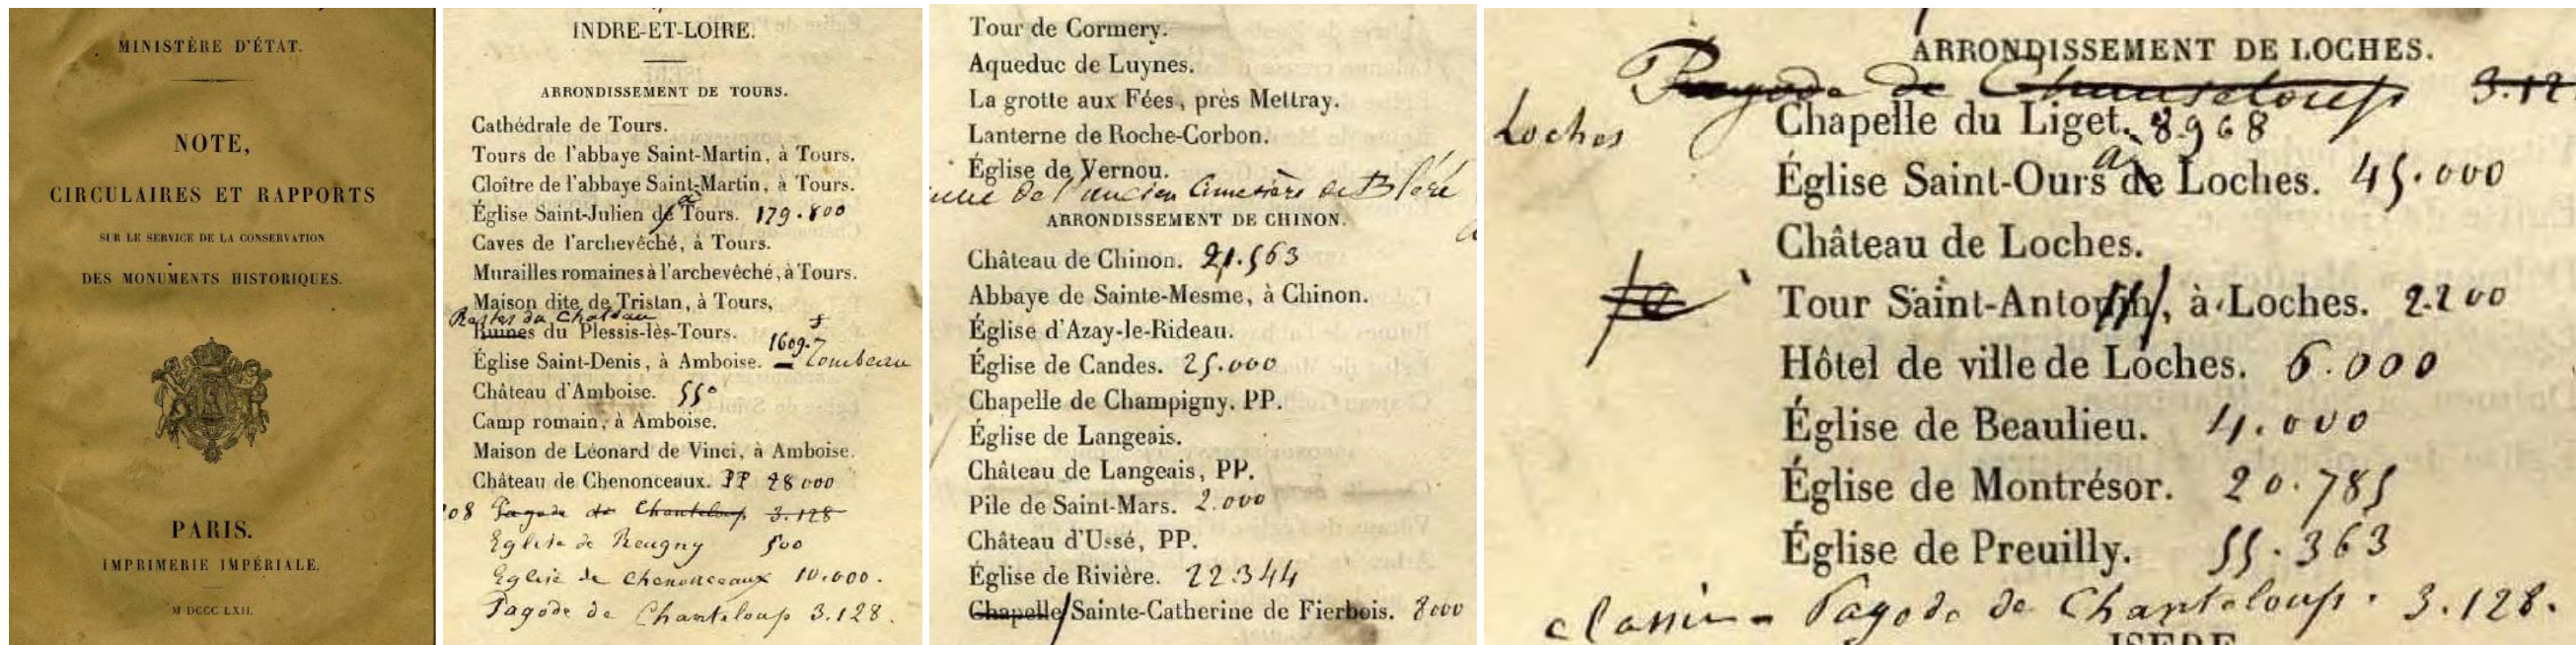 MINISTÈRE D'ÉTAT.
NOTE,
CIRCULAIRES ET RAPPORTS
SUR LE SERVICE DE LA CONSERVATION
DES MONUMENTS HISTORIQUES.
PARIS.
IMPRIMERIE IMPÉRIALE.
M DCCC LXII.
INDRE-ET-LOIRE.
ARRONDISSEMENT DE TOURS.
Cathédrale de Tours.
Tours de l'abbaye Saint-Martin, à Tours.
Cloître de l'abbaye Saint-Martin, à Tours.
à
Église Saint-Julien de Tours. 179.800
Caves de l'archevêché, à Tours.
Murailles romaines à l'archevêché, à Tours.
Maison dite de Tristan, à Tours.
Restes du Chateau
Ruines du Plessis-lès-Tours.
1609.7
Église Saint-Denis, à Amboise. - Tombeau
Château d'Amboise. 550
Camp romain, à Amboise.
Maison de Léonard de Vinci, à Amboise.
Château de Chenonceaux. PP 28000
208 Pagode de Chanteloup 3.128
Eglise de Reugny 500
Eglise de Chenonceaux 10.000.
Pagode de Chanteloup 3.128.
Tour de Cormery.
Aqueduc de Luynes.
La grotte aux Fées, près Mettray.
Lanterne de Roche-Corbon.
Église de Vernou.
de l'ancien Cimetière de Bléré
ARRONDISSEMENT DE CHINON.
Château de Chinon. 21.563
Abbaye de Sainte-Mesme, à Chinon.
Église d'Azay-le-Rideau.
Église de Candes. 25.000
Chapelle de Champigny. PP.
Église de Langeais.
Château de Langeais, PP.
Pile de Saint-Mars. 2.000
Château d'Ussé, PP.
Église de Rivière. 22.344
Chapelle Sainte-Catherine de Fierbois. 8000
ARRONDISSEMENT DE LOCHES.
Pagode de Chanteloup 3.12
Loches Chapelle du Liget. 8.968
à
Église Saint-Ours de Loches. 45.000
Château de Loches.
Tour Saint-Antonin, à Loches. 2.200
Hôtel de ville de Loches. 6.000
Église de Beaulieu. 4.000
Église de Montrésor. 20.785
Église de Preuilly. 55.363
Pagode de Chanteloup. 3.128.
ISÈRE